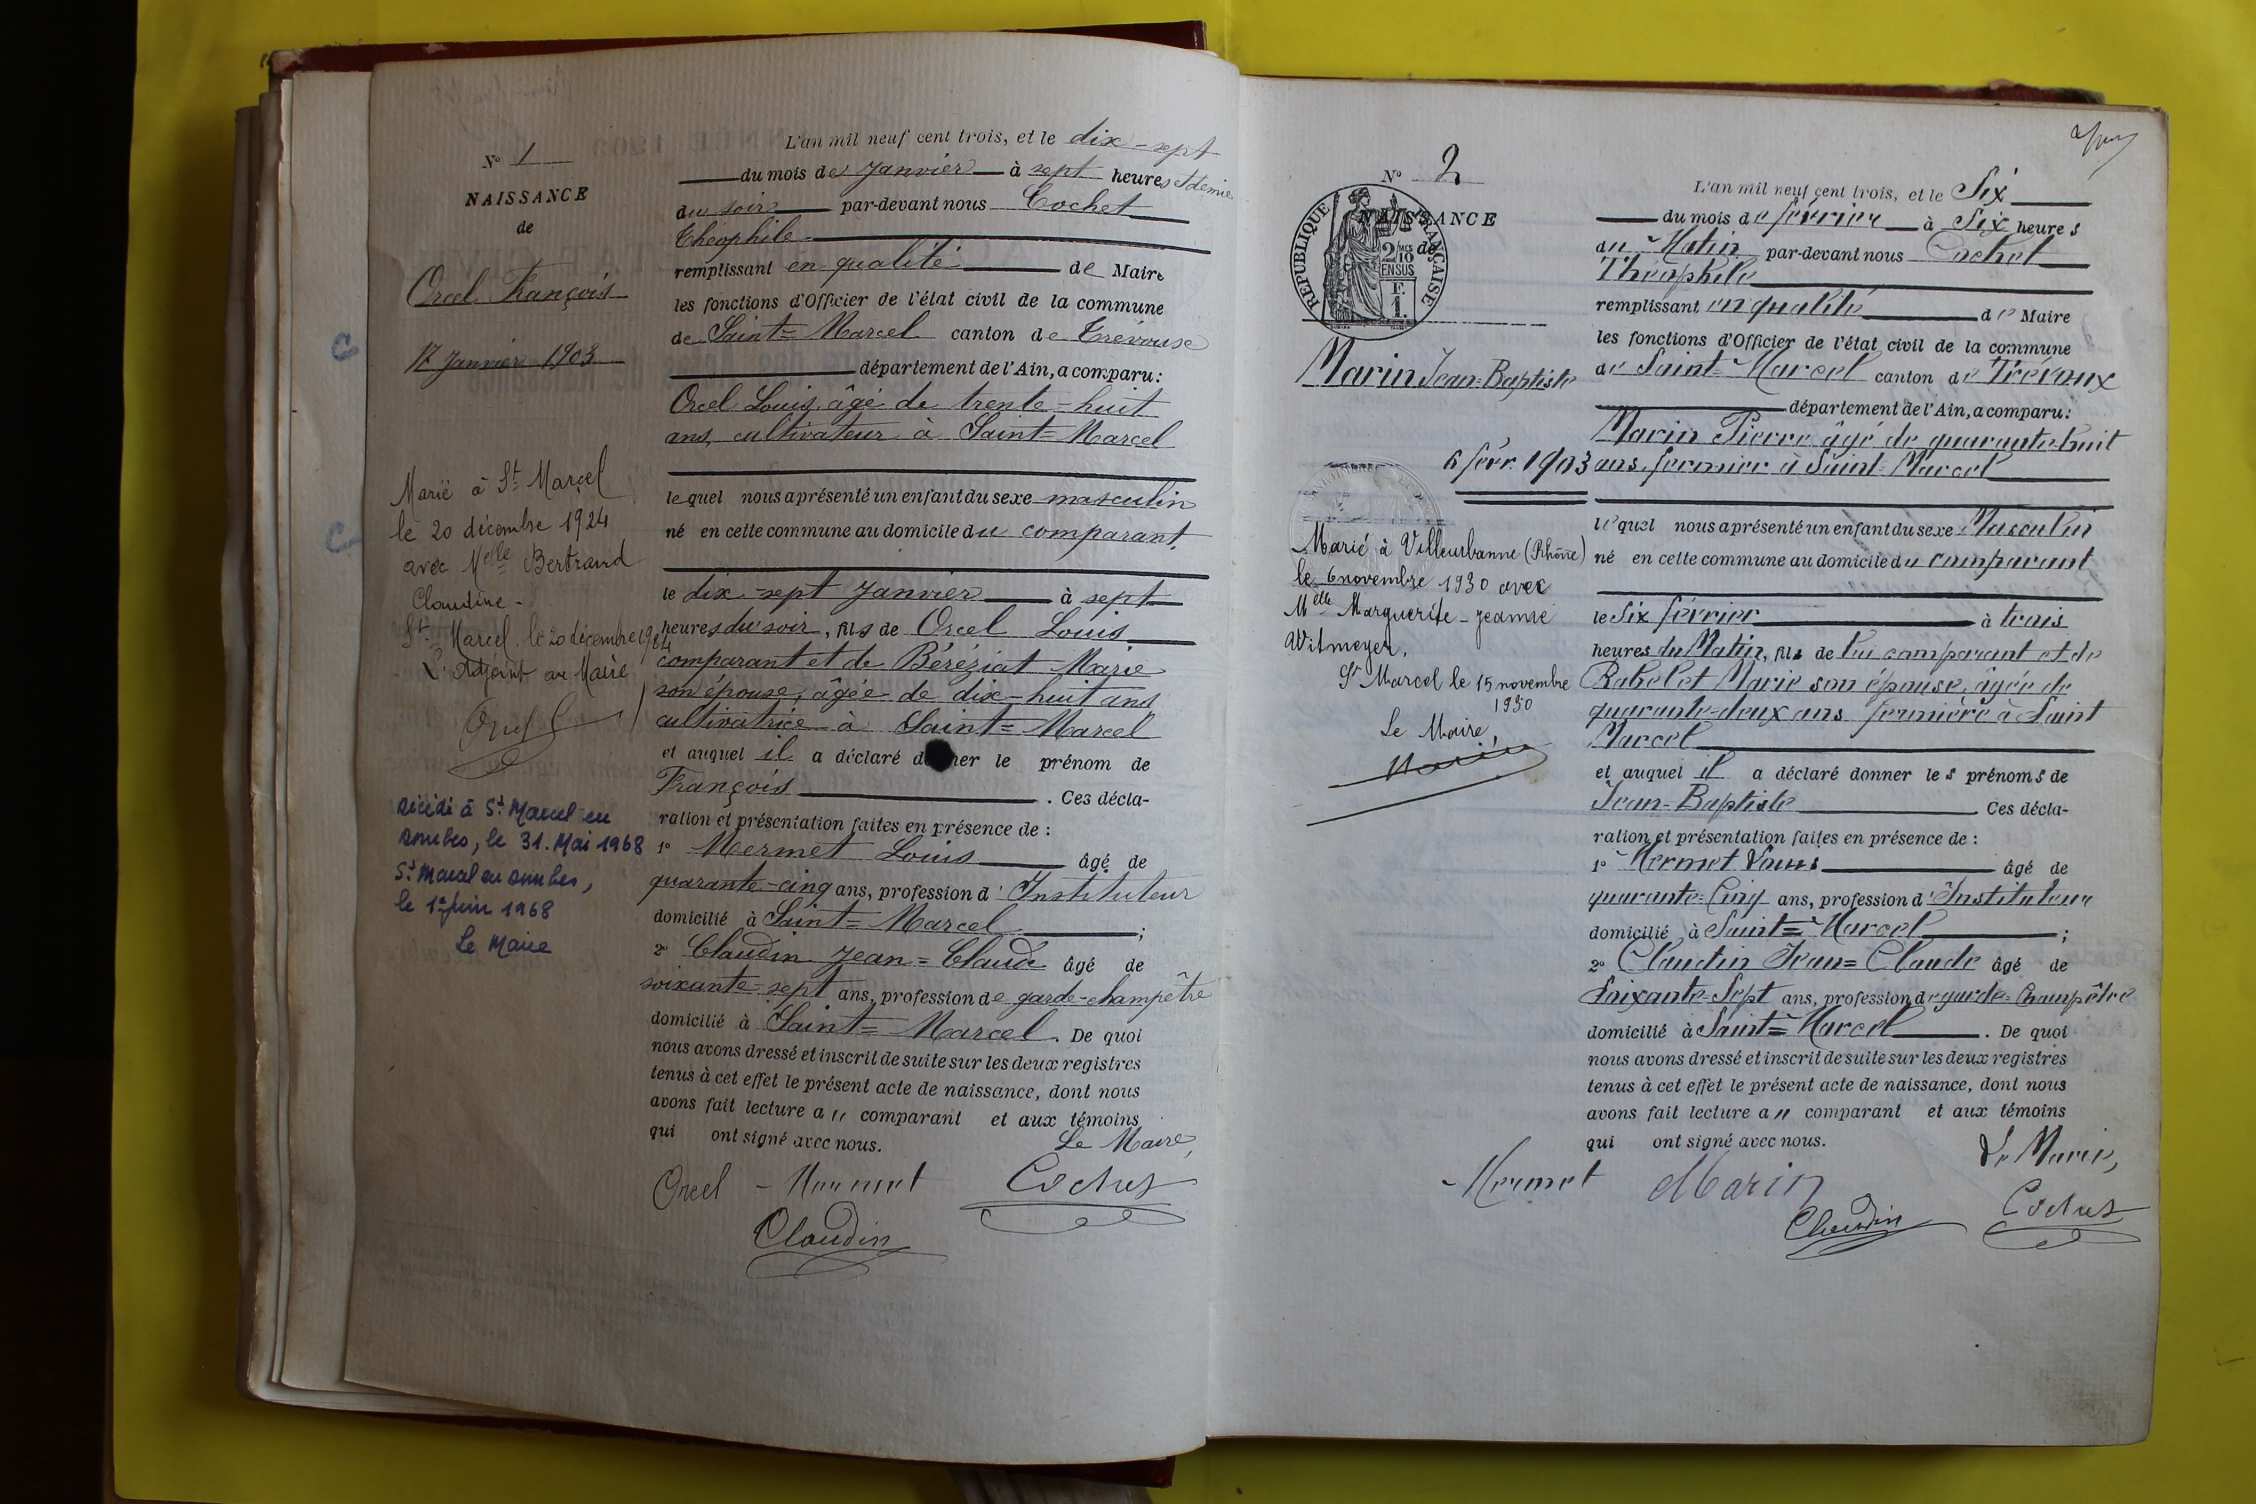 N° 1
NAISSANCE
de
Orcel François
17 Janvier 1903
Marié à St Marcel
le 20 décembre 1924
avec Melle Bertrand
Claudine -
St Marcel le 20 décembre 1924
L'Adjoint au Maire
Orcel
Décédé à St Marcel en
Dombes, le 31. Mai 1968
St Marcel en Dombes,
le 1er Juin 1968
Le Maire
L'an mil neuf cent trois, et le dix-sept
du mois de Janvier à sept heures et demie
du soir par-devant nous Cochet
Théophile
remplissant en qualité de Maire
les fonctions d'Officier de l'état civil de la commune
de Saint=Marcel canton de Trévouse
département de l'Ain, a comparu:
Orcel Louis, âgé de trente-huit
ans, cultivateur à Saint=Marcel
lequel nous a présenté un enfant du sexe masculin
né en cette commune au domicile du comparant.
le dix-sept Janvier à sept
heures du soir, fils de Orcel Louis
comparant et de Béréziat Marie
son épouse, âgée de dix-huit ans
cultivatrice à Saint=Marcel
et auquel il a déclaré donner le prénom de
François . Ces décla-
ration et présentation faites en présence de :
1° Mermet Louis âgé de
quarante-cinq ans, profession d'Instituteur
domicilié à Saint=Marcel ;
2° Claudin Jean=Claude âgé de
soixante-sept ans, profession de garde-champêtre
domicilié à Saint=Marcel. De quoi
nous avons dressé et inscrit de suite sur les deux registres
tenus à cet effet le présent acte de naissance, dont nous
avons fait lecture au comparant et aux témoins
qui ont signé avec nous.
Le Maire,
Orcel Mermet Cochet
Claudin
N° 2
NAISSANCE
de
RÉPUBLIQUE FRANÇAISE
2/10 EN SUS
F. 1.
Marin Jean=Baptiste
6 févr. 1903
Marié à Villeurbanne (Rhône)
le 6 novembre 1930 avec
Melle Marguerite-Jeanne
Witmeyer.
St Marcel le 15 novembre
1930
Le Maire,
L'an mil neuf cent trois, et le Six
du mois de février à Six heures
du Matin par-devant nous Cochet
Théophile
remplissant en qualité de Maire
les fonctions d'Officier de l'état civil de la commune
de Saint=Marcel canton de Trévoux
département de l'Ain, a comparu:
Marin Pierre âgé de quarante-huit
ans, fermier à Saint=Marcel
lequel nous a présenté un enfant du sexe Masculin
né en cette commune au domicile du comparant
le Six février à trois
heures du Matin, fils de lui comparant et de
Rabelet Marie son épouse, âgée de
quarante=deux ans fermière à Saint
Marcel
et auquel il a déclaré donner les prénoms de
Jean-Baptiste Ces décla-
ration et présentation faites en présence de :
1° Mermet Louis âgé de
quarante=Cinq ans, profession d'Instituteur
domicilié à Saint=Marcel ;
2° Claudin Jean=Claude âgé de
Soixante=Sept ans, profession de garde=Champêtre
domicilié à Saint=Marcel . De quoi
nous avons dressé et inscrit de suite sur les deux registres
tenus à cet effet le présent acte de naissance, dont nous
avons fait lecture au comparant et aux témoins
qui ont signé avec nous.
Le Maire,
Mermet Marin
Claudin Cochet